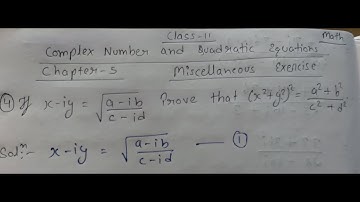 Class-11 Math
Complex Number and Quadratic Equations
Chapter-5 Miscellaneous Exercise
④ If x-iy = √(a-ib / c-id) Prove that (x²+y²)² = a²+b² / c²+d²
Solⁿ:- x-iy = √(a-ib / c-id) —— ①